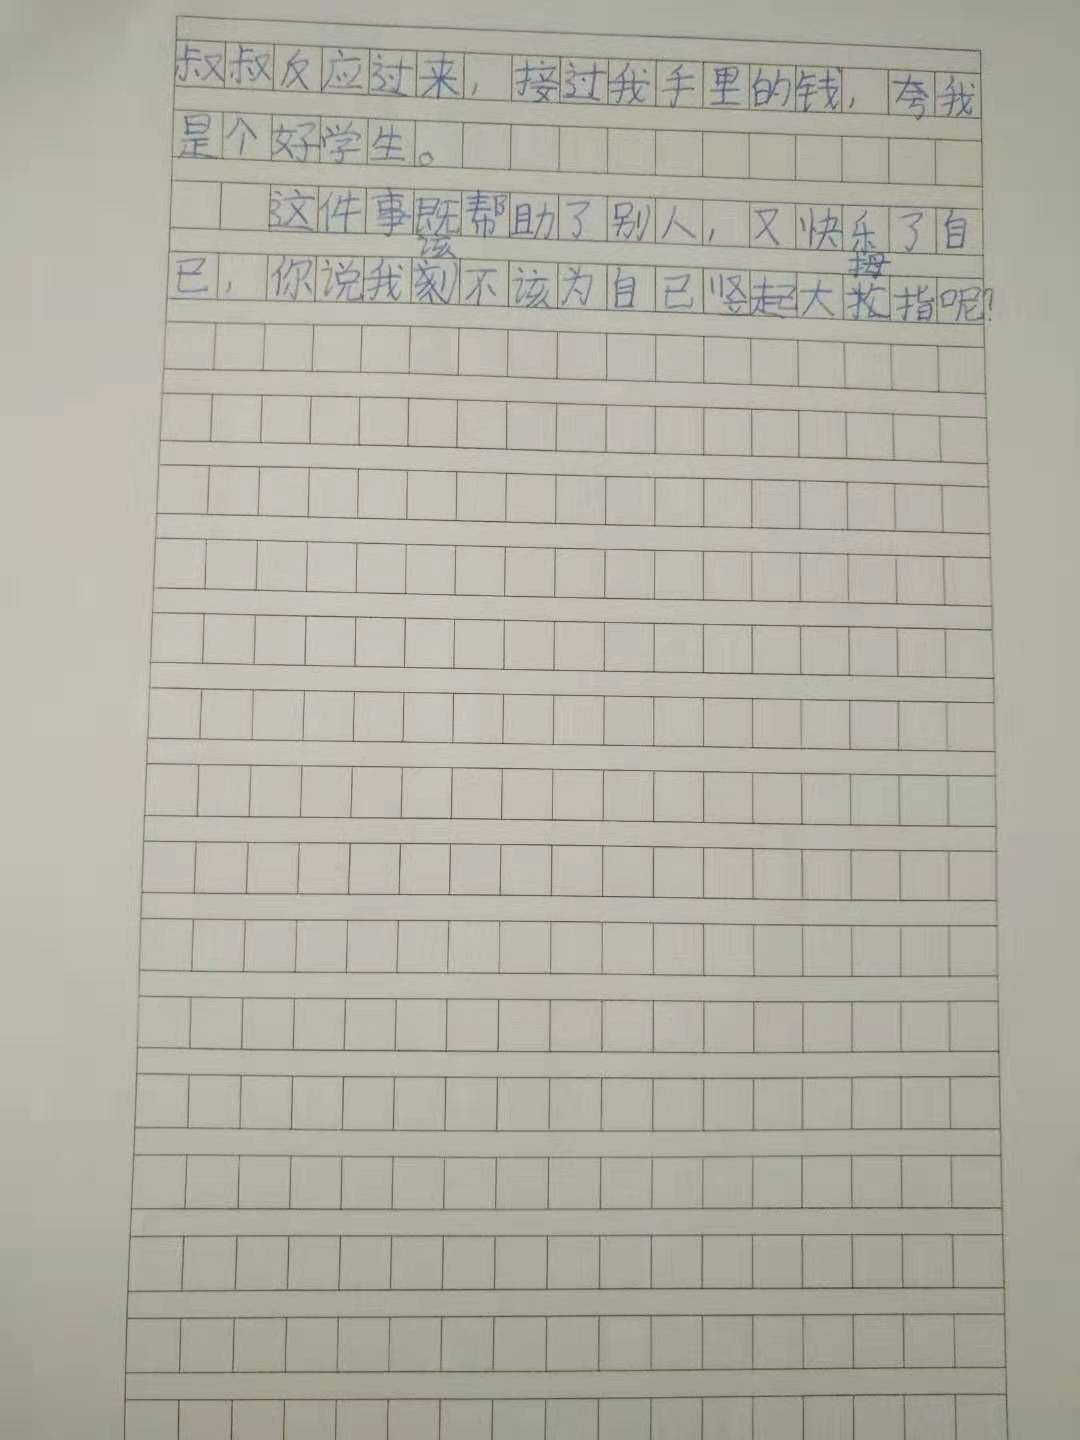 叔叔反应过来，接过我手里的钱，夸我
是个好学生。
这件事既帮助了别人，又快乐了自
该
拇
已，你说我不该为自已竖起大指呢？